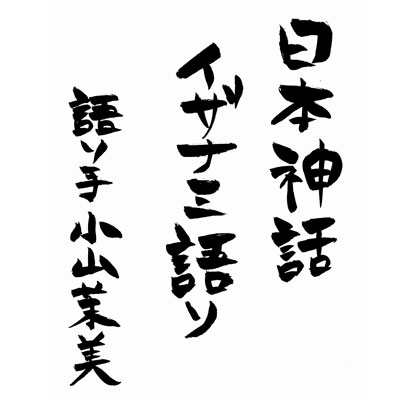 日本神話
イザナミ語り
語り手 小山茉美